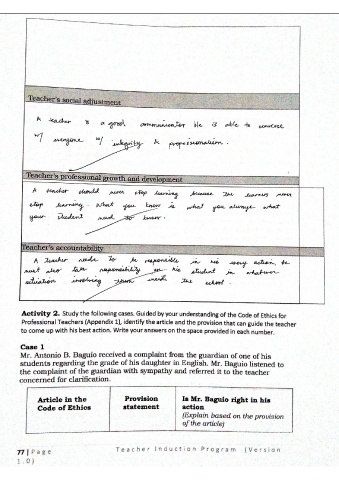 Teacher's social adjustment
A teacher is a good communicator. He is able to converse
w/ everyone w/ integrity & professionalism.
Teacher's professional growth and development
A teacher should never stop learning because the learners never
stop learning. What you know is what you always what
your student need to know.
Teacher's accountability
A teacher needs to be responsible in his every action, he
must also take responsibility on his student in whatever
situation involving them inside the school.
Activity 2. Study the following cases. Guided by your understanding of the Code of Ethics for
Professional Teachers (Appendix 1), identify the article and the provision that can guide the teacher
to come up with his best action. Write your answers on the space provided in each number.
Case 1
Mr. Antonio B. Baguio received a complaint from the guardian of one of his
students regarding the grade of his daughter in English. Mr. Baguio listened to
the complaint of the guardian with sympathy and referred it to the teacher
concerned for clarification.
Article in the Provision Is Mr. Baguio right in his
Code of Ethics statement action
(Explain based on the provision
of the article)
77 | Page Teacher Induction Program (Version
1.0)